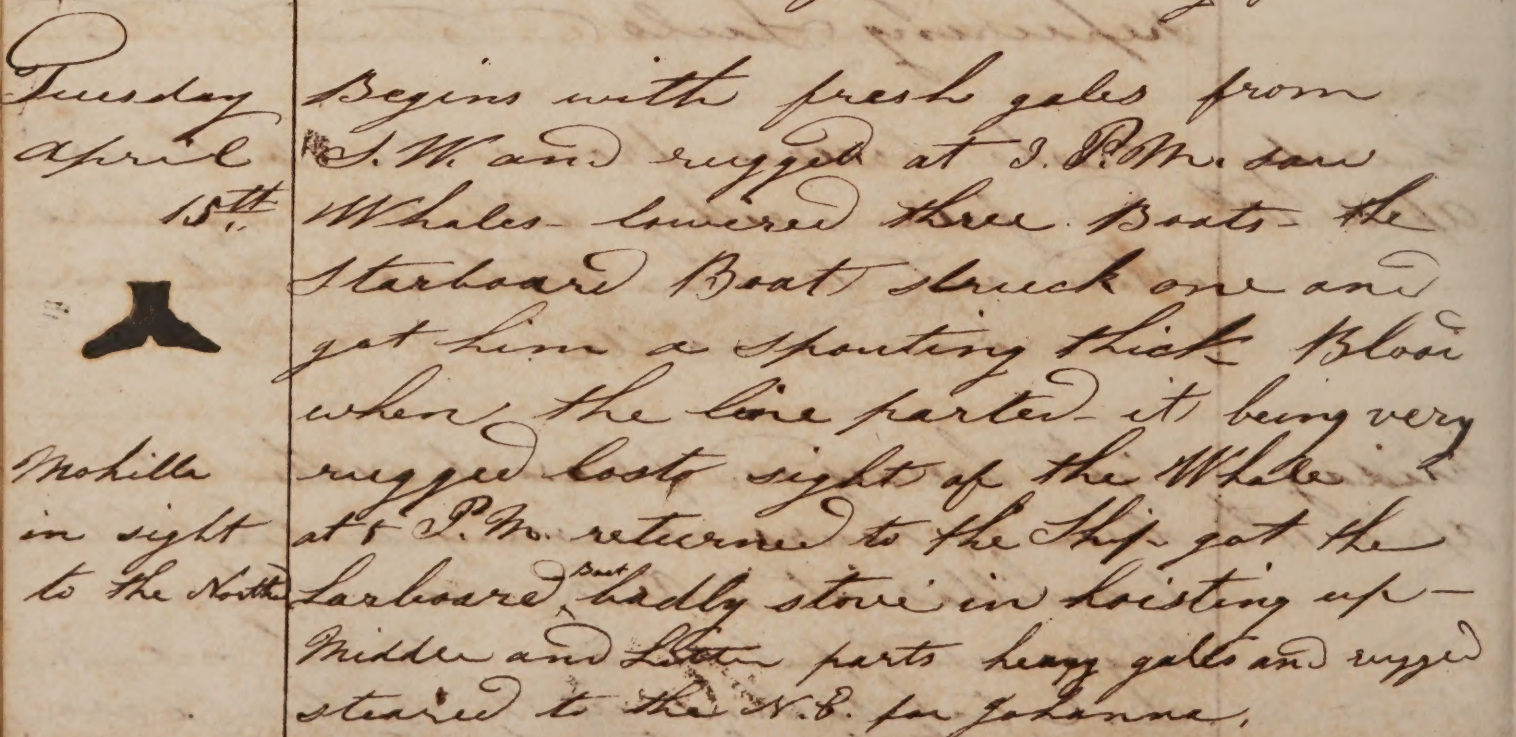 Tuesday
April
15th
Mohilla
in sight
to the North
Begins with fresh gales from
S.W. and rugged at 3. P.M. saw
Whales - lowered three Boats - the
Starboard Boat struck one and
got him a spouting thick Blood
when the line parted - it being very
rugged lost sight of the Whale
at 5 P.M. returned to the Ship got the
Larboard Boat badly stove in hoisting up -
Middle and Latter parts heavy gales and rugged
steared to the N.E. for Johanna.